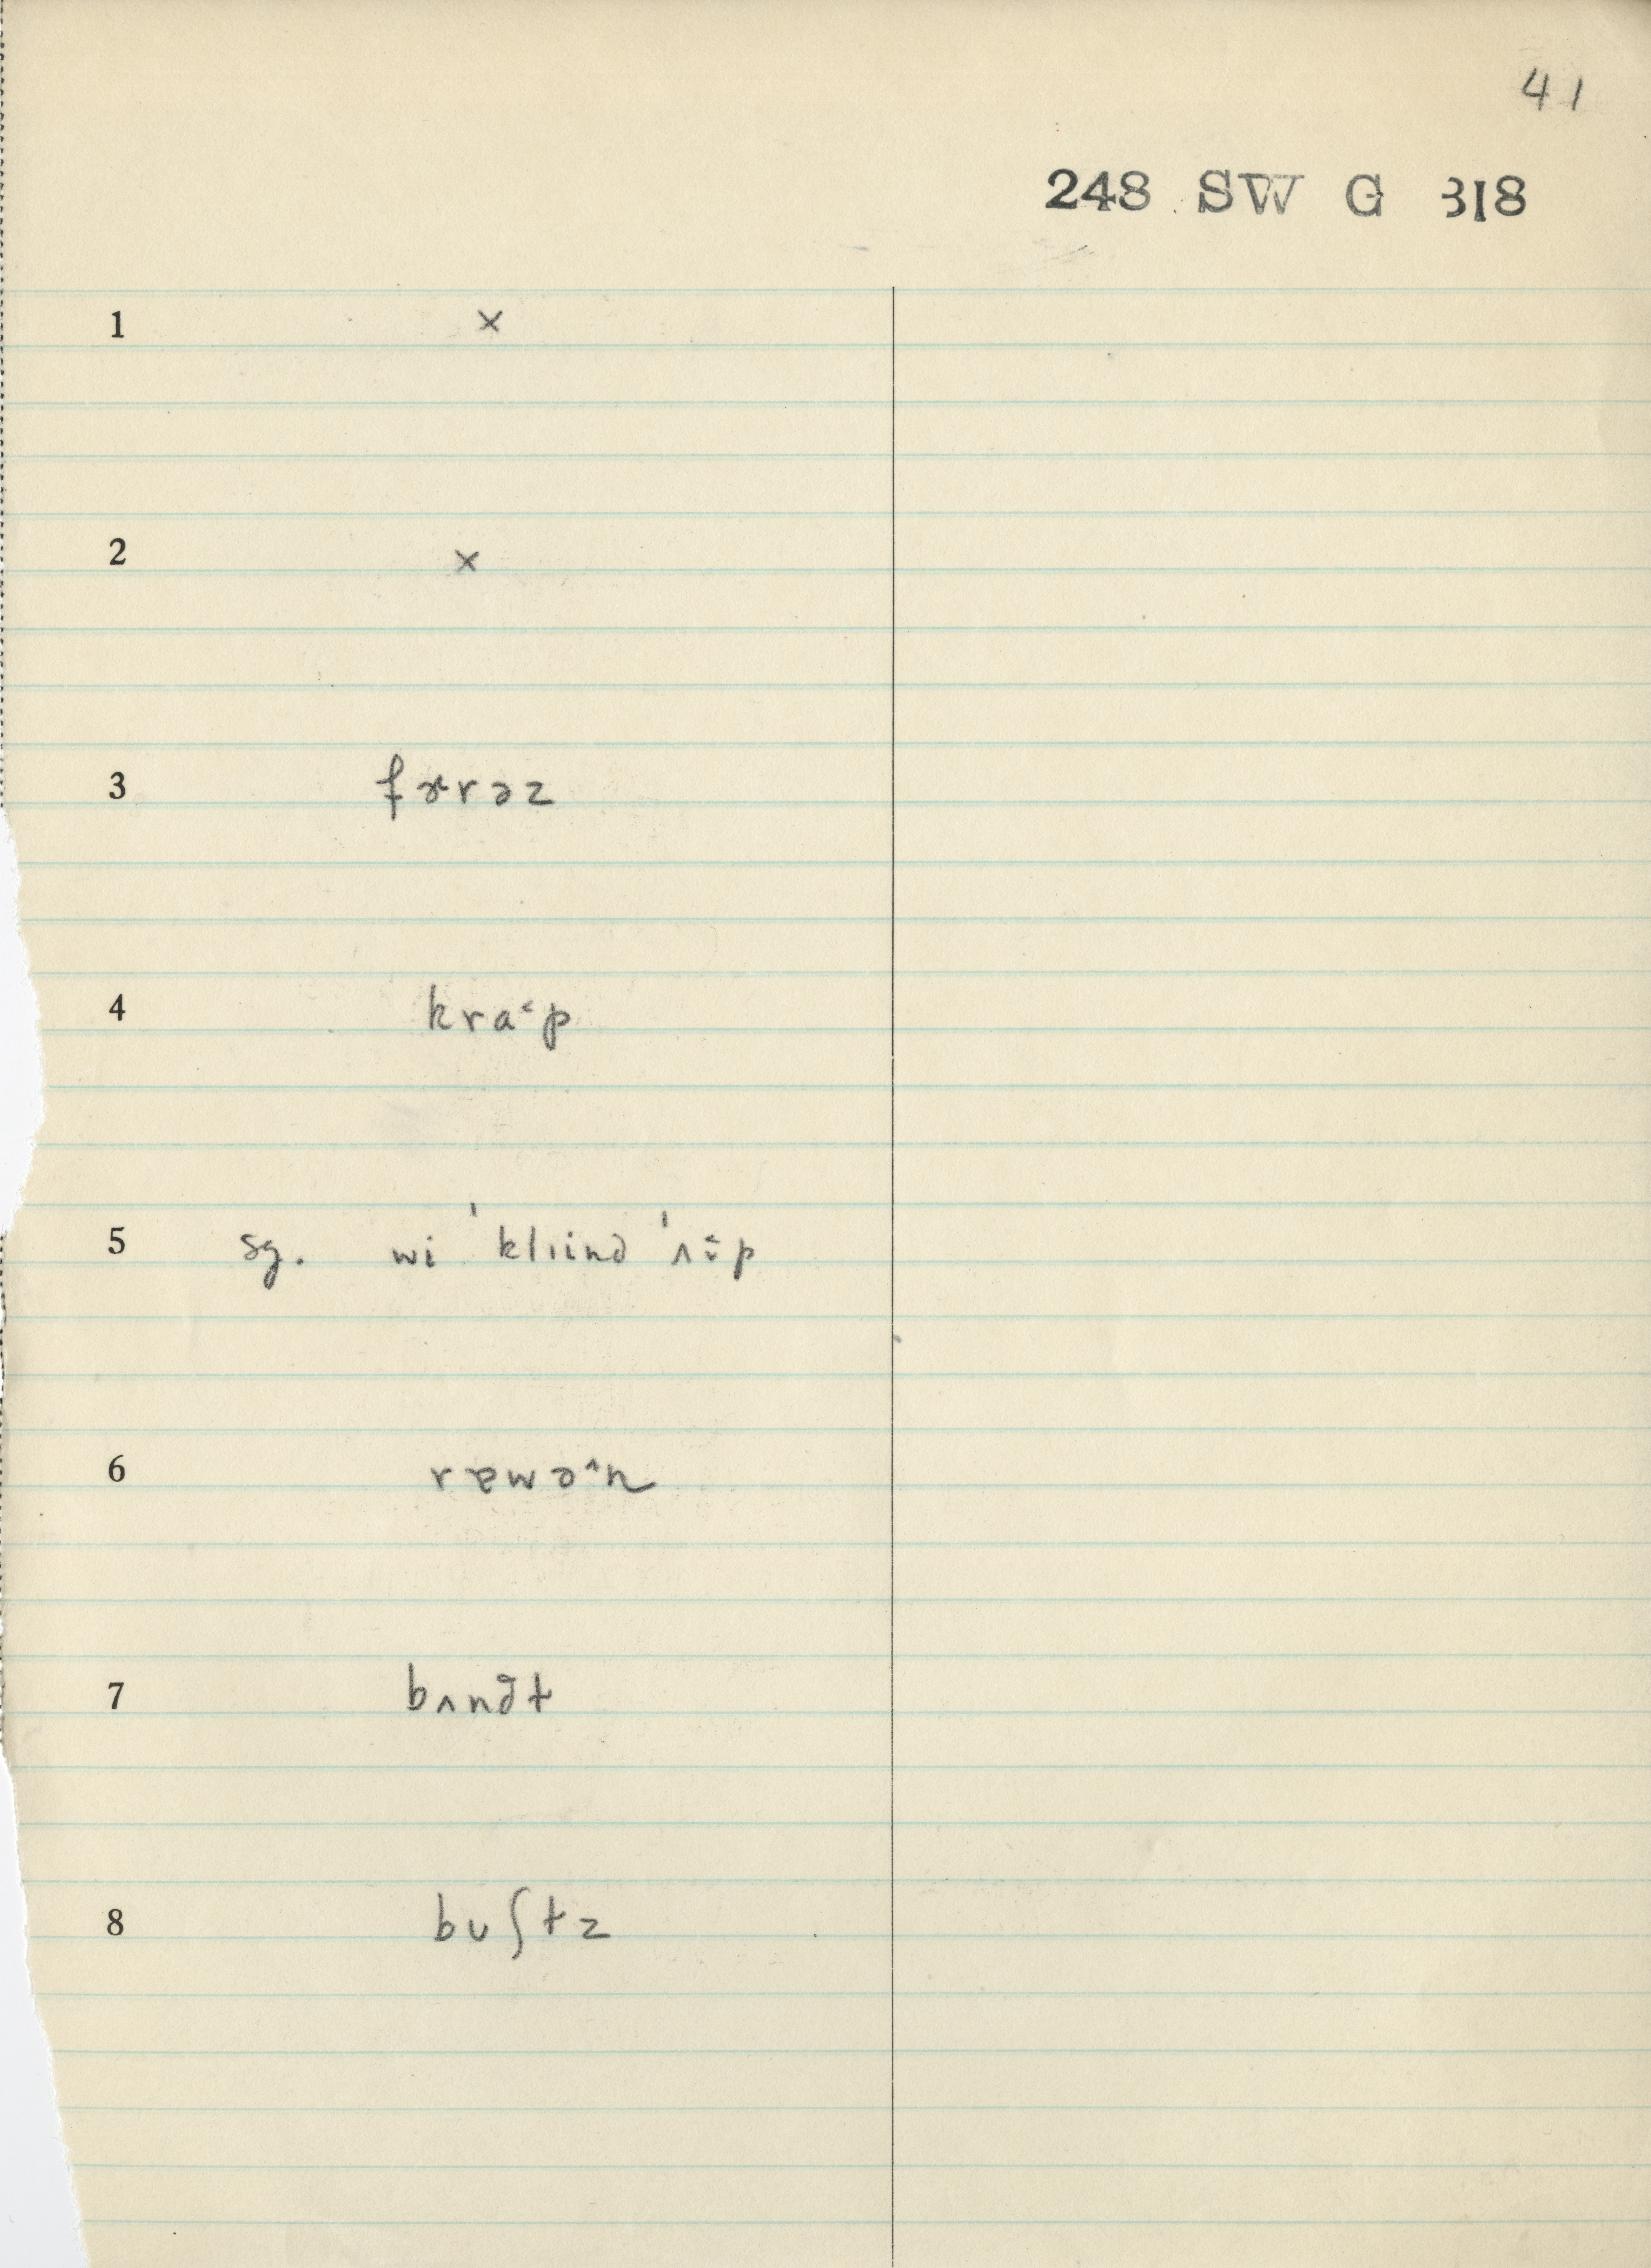 41
248 SW G 318
1 ×
2 ×
3 fɚrəz
4 kra˂p
5 sg. wi ˈklɪində ˈʌ˂p
6 rɐwɔ˄ɪn
7 bʌnə̆t
8 bʊʃtz